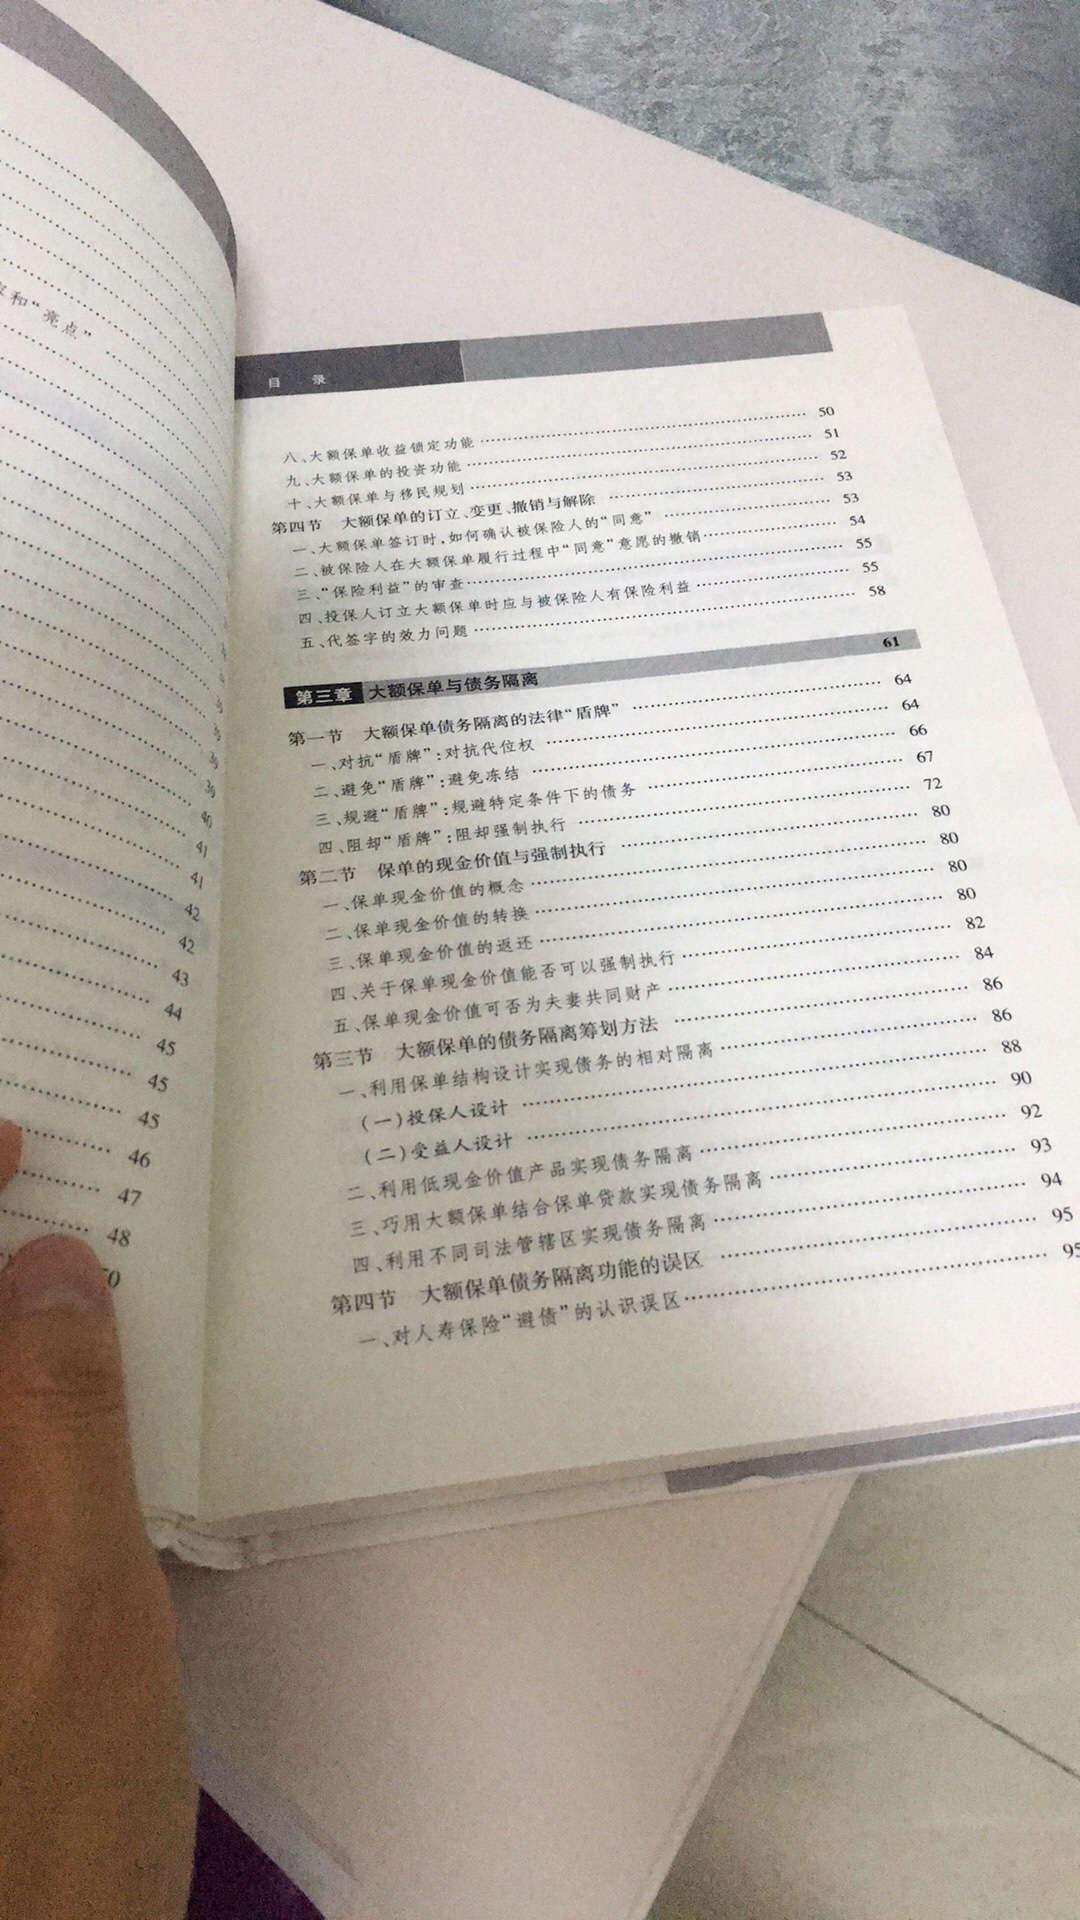 和“亮点”
39
39
40
41
41
42
42
43
44
45
45
45
46
47
48
50
目 录
八、大额保单收益锁定功能 50
九、大额保单的投资功能 51
十、大额保单与移民规划 52
第四节 大额保单的订立、变更、撤销与解除 53
一、大额保单签订时,如何确认被保险人的“同意” 53
二、被保险人在大额保单履行过程中“同意”意愿的撤销 54
三、“保险利益”的审查 55
四、投保人订立大额保单时应与被保险人有保险利益 55
五、代签字的效力问题 58
第三章 大额保单与债务隔离 61
第一节 大额保单债务隔离的法律“盾牌” 64
一、对抗“盾牌”:对抗代位权 64
二、避免“盾牌”:避免冻结 66
三、规避“盾牌”:规避特定条件下的债务 67
四、阻却“盾牌”:阻却强制执行 72
第二节 保单的现金价值与强制执行 80
一、保单现金价值的概念 80
二、保单现金价值的转换 80
三、保单现金价值的返还 80
四、关于保单现金价值能否可以强制执行 82
五、保单现金价值可否为夫妻共同财产 84
第三节 大额保单的债务隔离筹划方法 86
一、利用保单结构设计实现债务的相对隔离 86
(一)投保人设计 88
(二)受益人设计 90
二、利用低现金价值产品实现债务隔离 92
三、巧用大额保单结合保单贷款实现债务隔离 93
四、利用不同司法管辖区实现债务隔离 94
第四节 大额保单债务隔离功能的误区 95
一、对人寿保险“避债”的认识误区 95